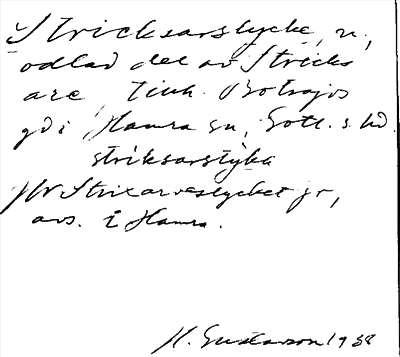 Stricksarstycke, n.,
odlad del av Stricks
are, tillh. Botrajvs
gd i Hamra sn, Gotl. s. hd.
striksarstyka
Jfr Strixarvestycket fr,
avs. i Hamra.
H. Gustavson 1938